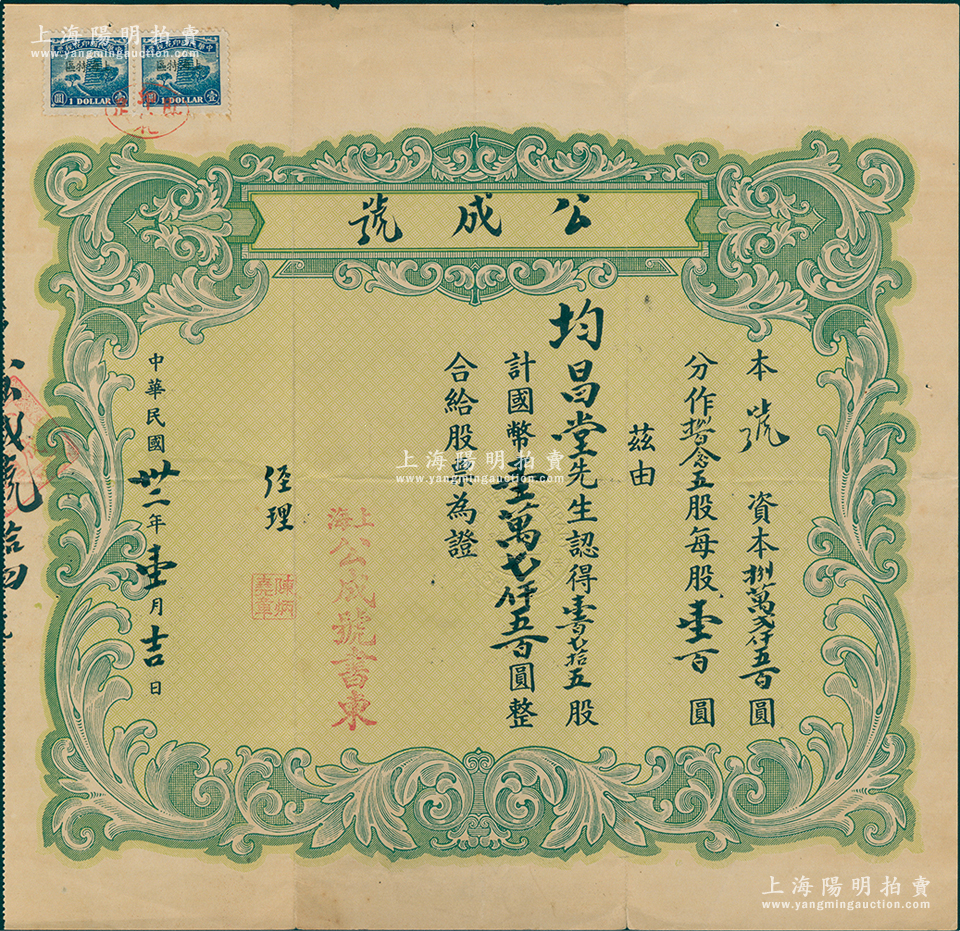 上海陽明拍賣
www.yangmingauction.com
1 DOLLAR
1 DOLLAR
公成號
本號資本捌萬弍仟五百圓
分作捌百念五股每股壹百圓
茲由
均昌堂先生認得壹百七拾五股
計國幣壹萬七仟五百圓整
合給股票為證
上海公成號書柬
經理
陳炳堯章
中華民國卅二年壹月吉日
上海陽明拍賣
www.yangmingauction.com
上海陽明拍賣
www.yangmingauction.com